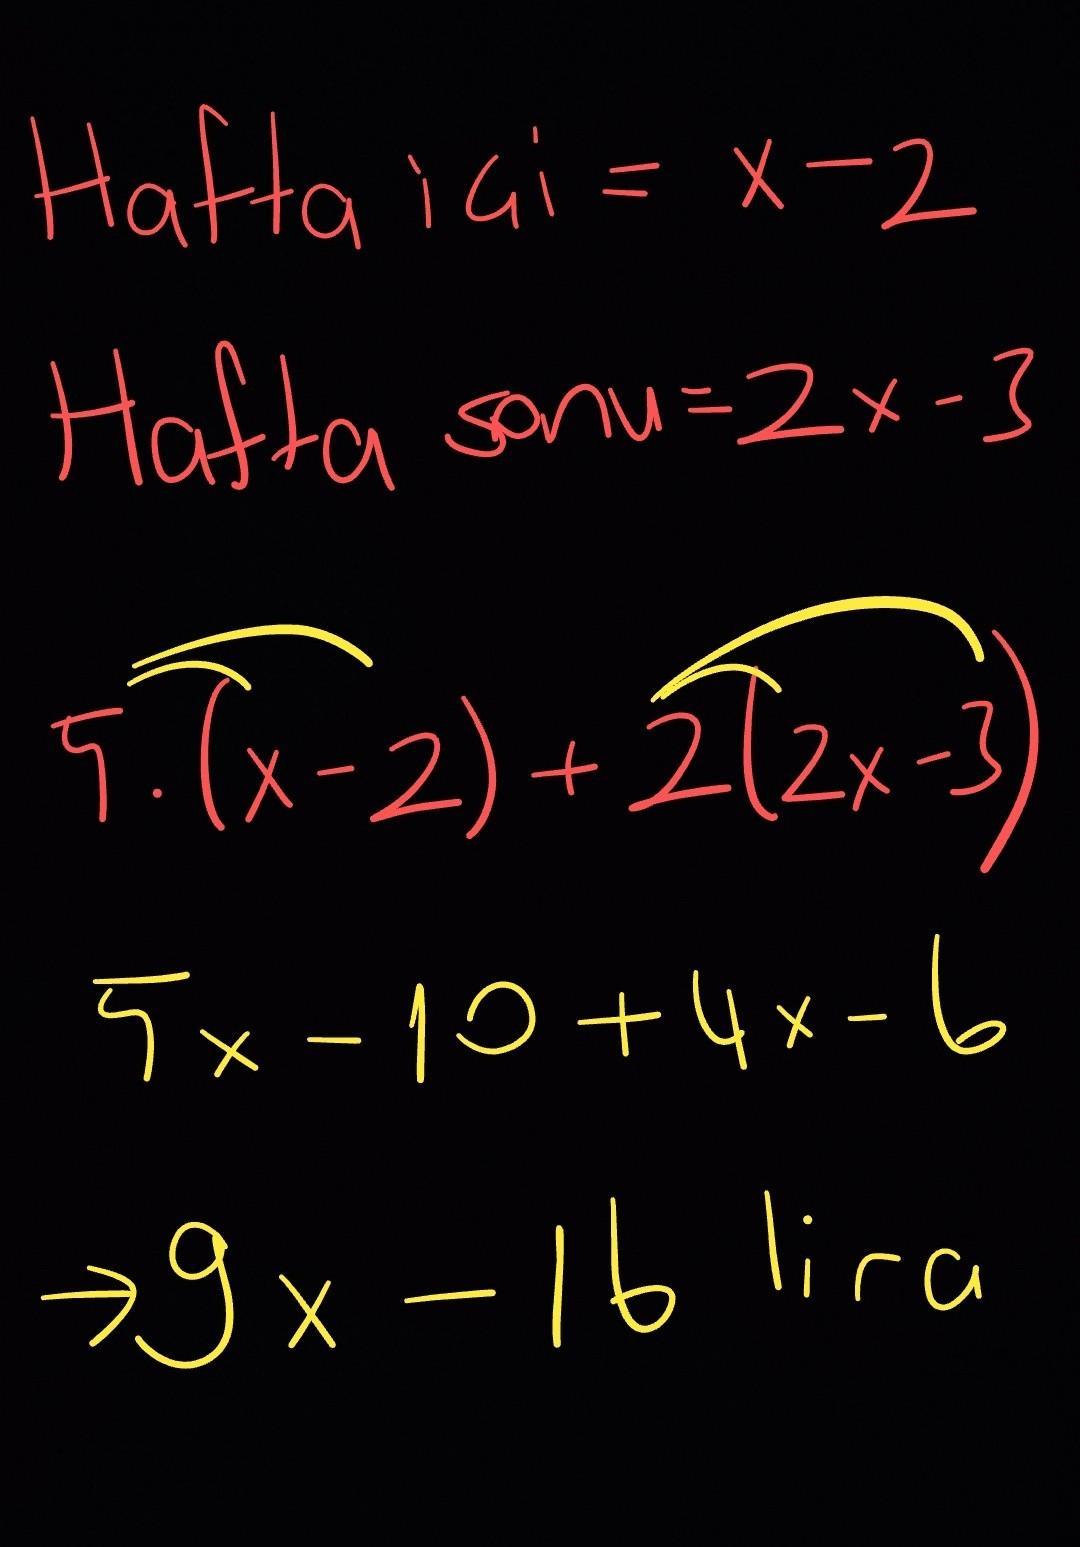 Hafta içi = x-2
Hafta sonu = 2x-3
5.(x-2)+2(2x-3)
5x-10+4x-6
→9x-16 lira